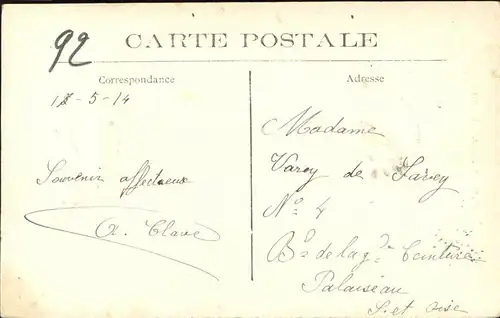 92
CARTE POSTALE
Correspondance
Adresse
18-5-14
Souvenir affectueux
A. Clave
Madame
Varey de Favey
No 4
Bd de la gde Ceinture
Palaiseau
S. et Oise